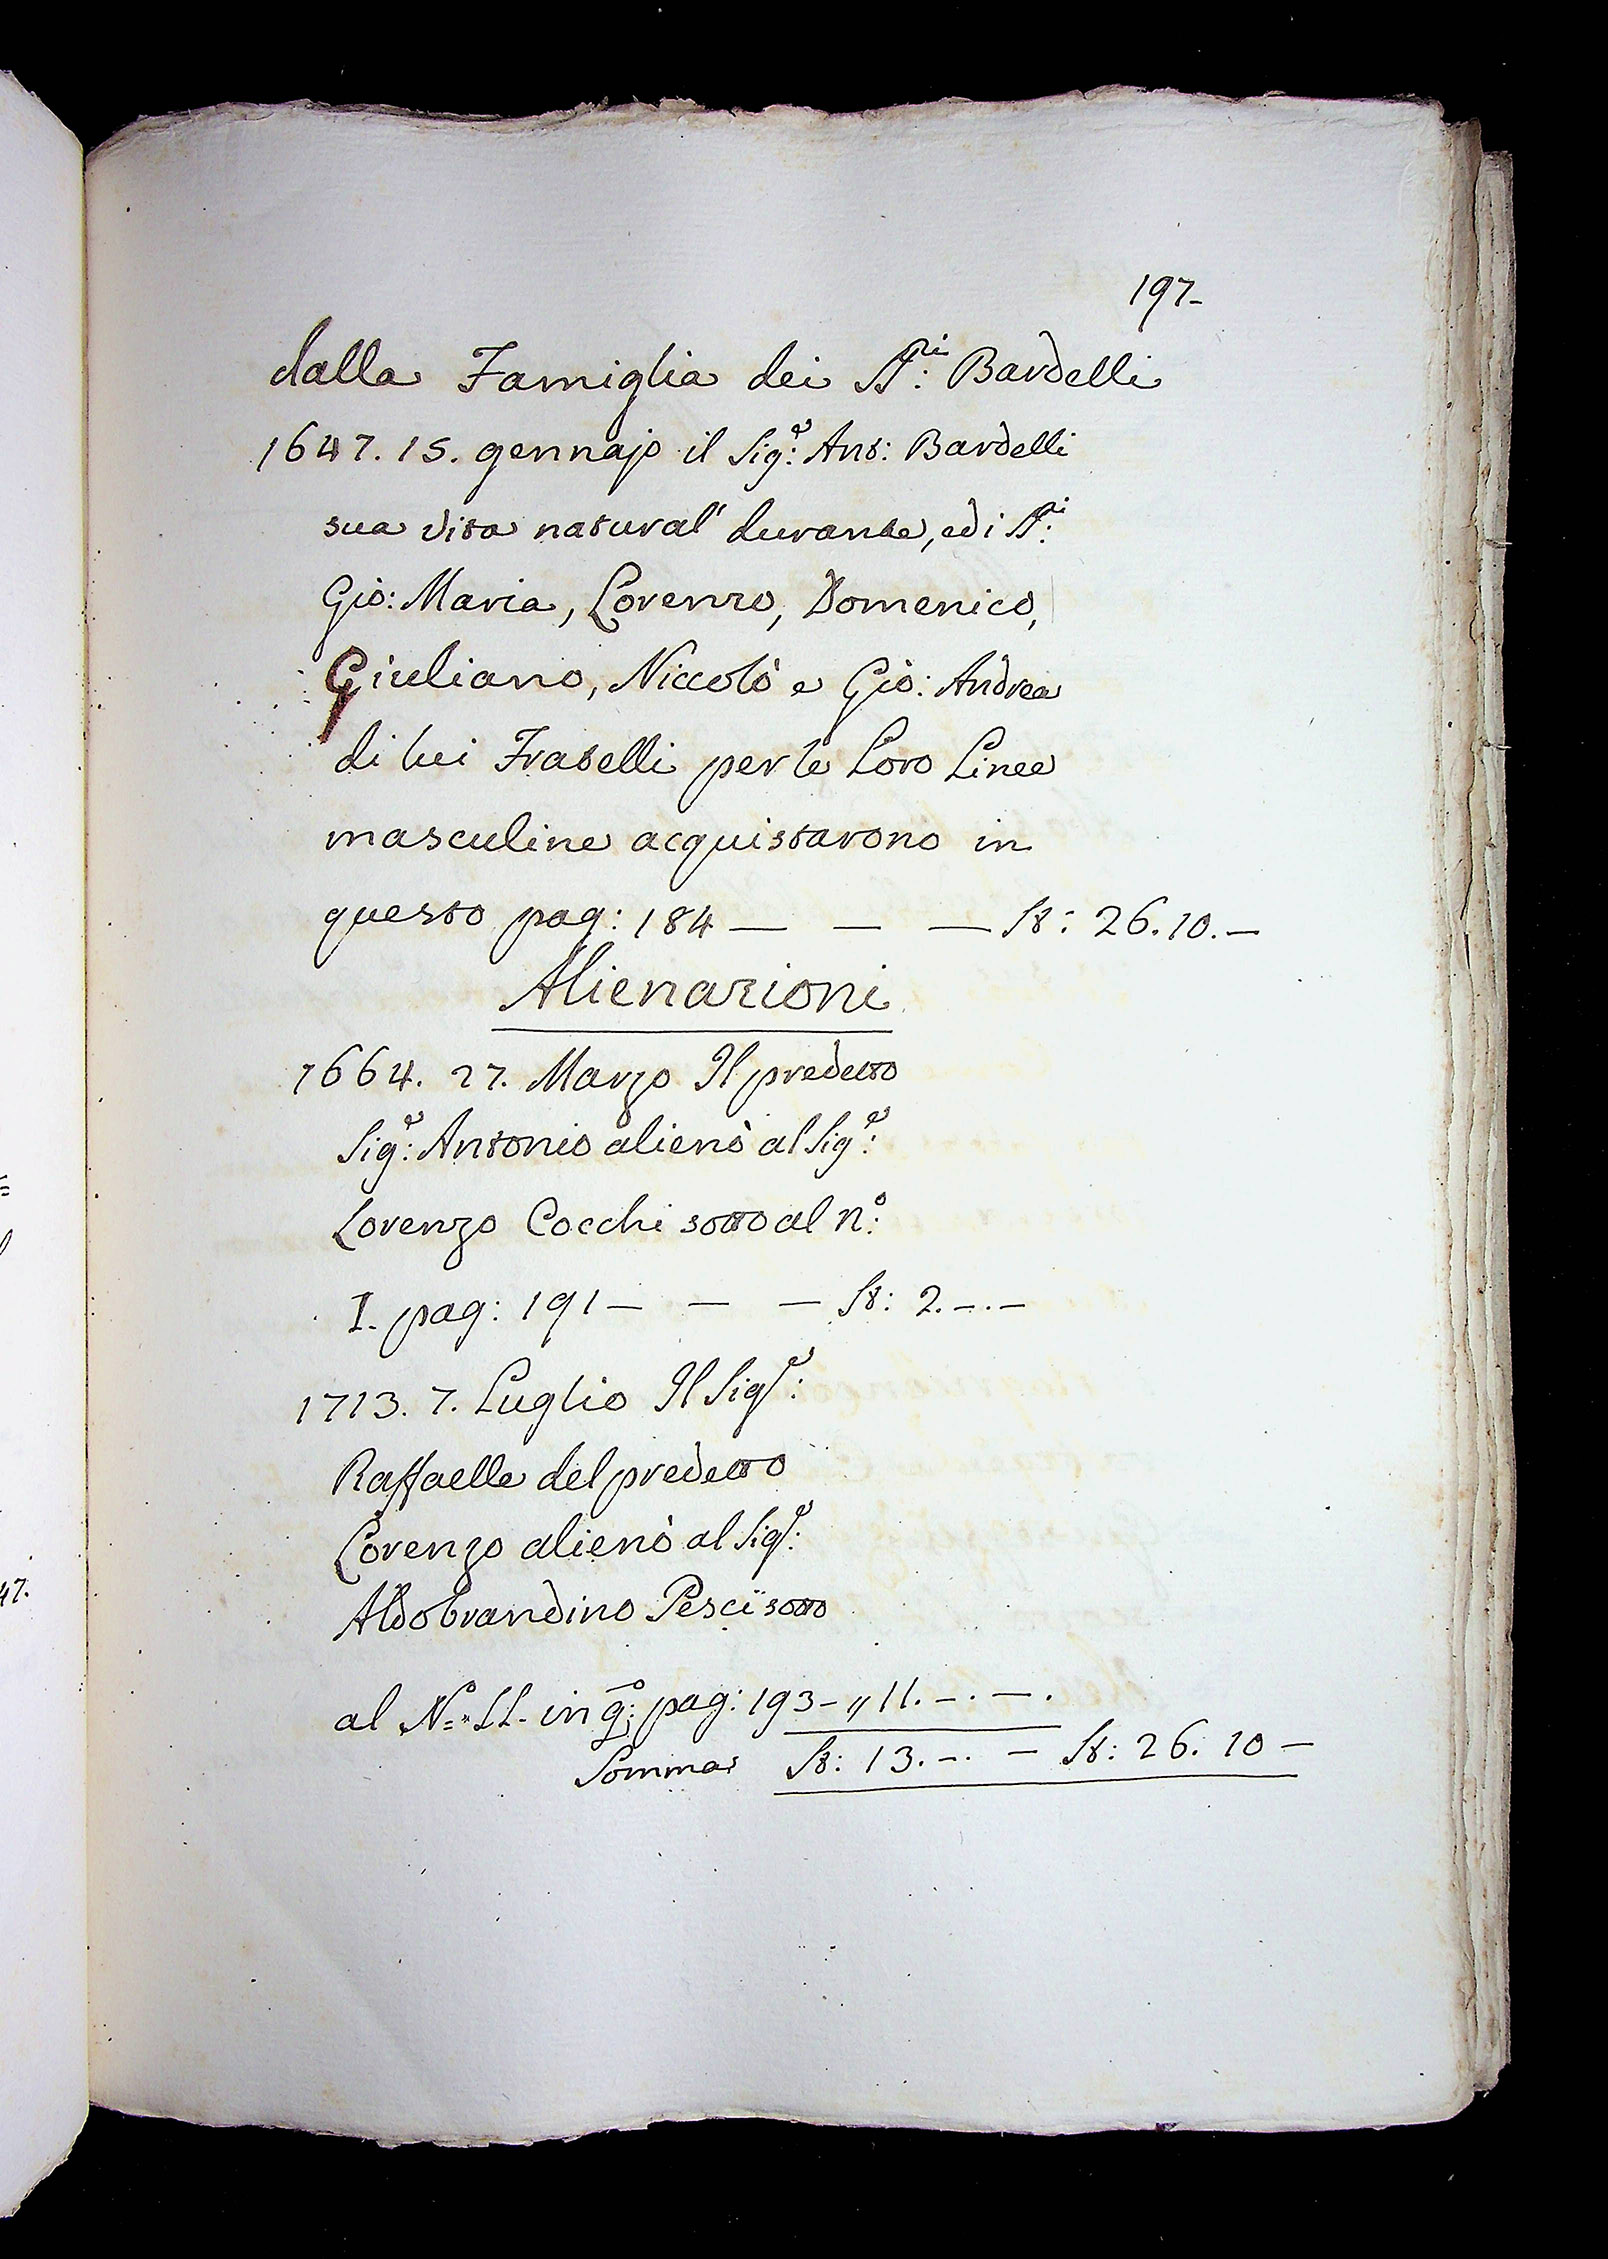 197-
dalla Famiglia dei SS.ri: Bardelli
1647. 15. gennajo il Sig.e: Ant: Bardelli
sua vita natural' durante, ed i SS.ri:
Gio: Maria, Lorenzo, Domenico,
Giuliano, Niccolò e Gio: Andrea
di lui Fratelli per le Loro Linee
masculine acquistarono in
questo pag: 184 — — — St: 26.10.—
Alienazioni
1664. 27. Marzo Il predetto
Sig.e: Antonio alienò al Sig.e:
Lorenzo Cocchi sotto al n.o:
I. pag: 191 — — — St: 2.—.—
1713. 7. Luglio Il Sig.e:
Raffaelle del predetto
Lorenzo alienò al Sig.e:
Aldobrandino Pesci sotto
al N.o II. in q.o: pag: 193 — „ 11.—.—.
Somma St: 13.—.— St: 26. 10 —
47.